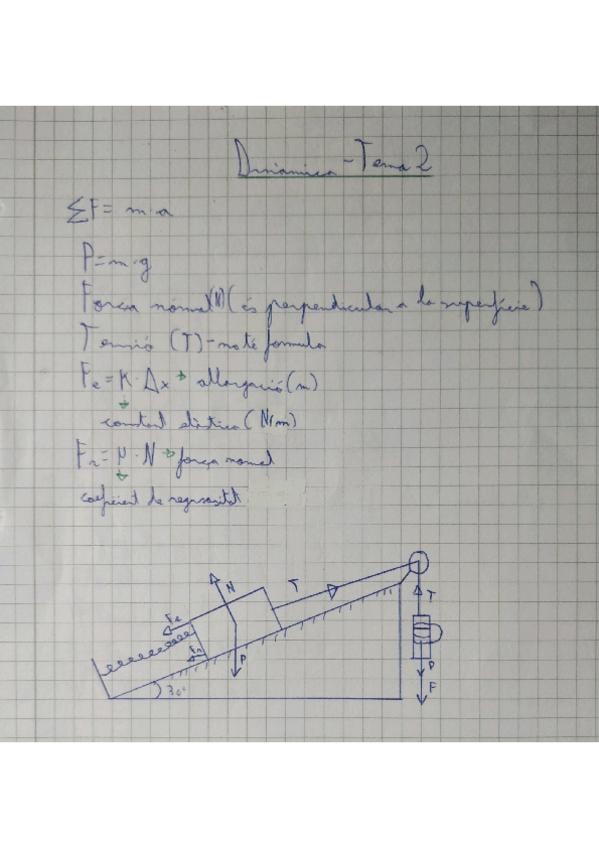 Dinàmica - Tema 2
ΣF = m·a
P = m·g
Força normal (N) (és perpendicular a la superfície)
Tensió (T) - no té formula
Fe = K·Δx → allargació (m)
constant elàstica (N/m)
Fr = μ·N → força normal
coeficient de rugositat
N
T
Fe
T
Fr
P
P
30°
F